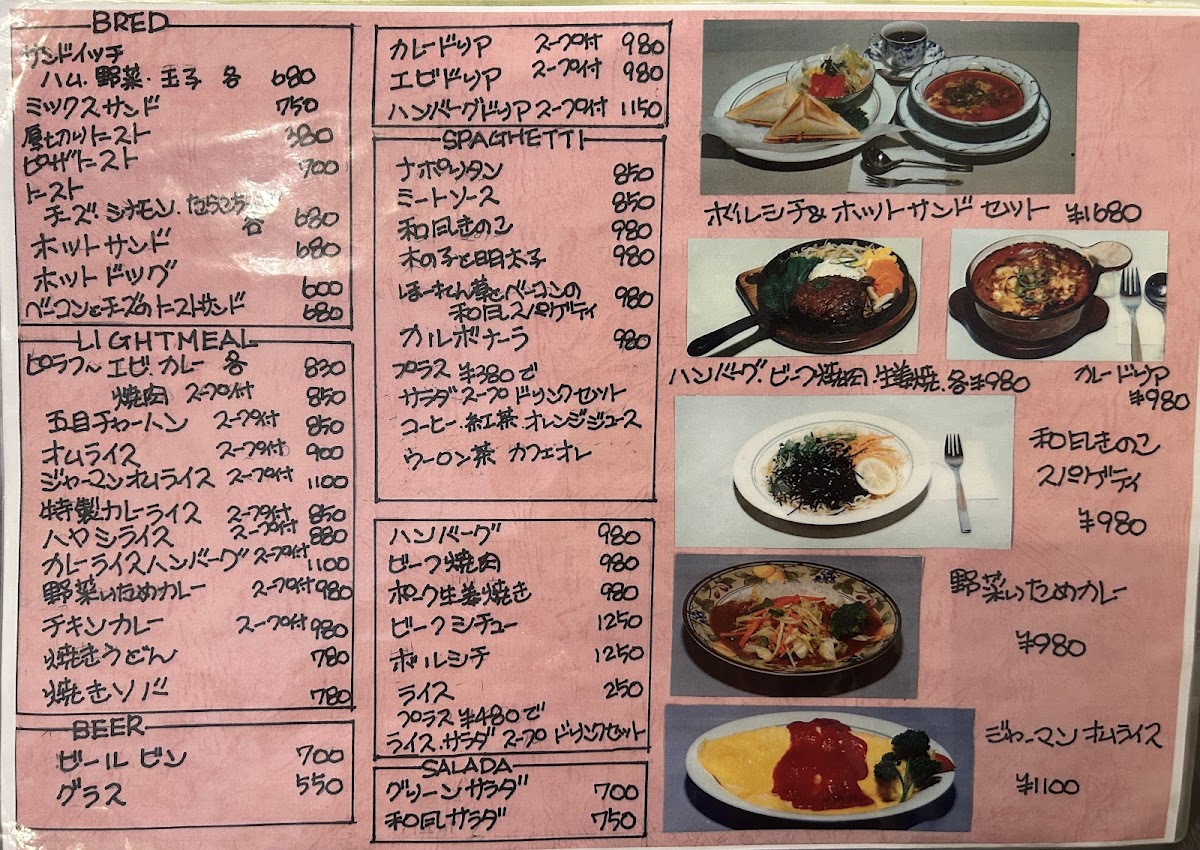 BRED
サンドイッチ
ハム.野菜.玉子 各 680
ミックスサンド 750
厚切りトースト 380
ピザトースト 700
トースト
チーズ.シナモン.たらこチーズ
各 680
ホットサンド 680
ホットドッグ 600
ベーコンとチーズのトーストサンド 680
LIGHTMEAL
ピラフ〜エビ.カレー 各 830
焼肉 スープ付 850
五目チャーハン スープ付 850
オムライス スープ付 900
ジャーマンオムライス スープ付 1100
特製カレーライス スープ付 850
ハヤシライス スープ付 880
カレーライスハンバーグ スープ付 1100
野菜いためカレー スープ付 980
チキンカレー スープ付 980
焼きうどん 780
焼きソバ 780
BEER
ビールビン 700
グラス 550
カレードリア スープ付 980
エビドリア スープ付 980
ハンバーグドリア スープ付 1150
SPAGHETTI
ナポリタン 850
ミートソース 850
和風きのこ 980
木の子と明太子 980
ほーれん草とベーコンの
和風スパゲティ 980
カルボナーラ 980
プラス ¥380で
サラダ スープ ドリンクセット
コーヒー.紅茶 オレンジジュース
ウーロン茶 カフェオレ
ハンバーグ 980
ビーフ焼肉 980
ポーク生姜焼き 980
ビーフシチュー 1250
ボルシチ 1250
ライス 250
プラス ¥480で
ライス.サラダ スープ ドリンクセット
SALADA
グリーンサラダ 700
和風サラダ 750
ボルシチ&ホットサンドセット ¥1680
ハンバーグ.ビーフ焼肉.生姜焼.各¥980
カレードリア
¥980
和風きのこ
スパゲティ
¥980
野菜いためカレー
¥980
ジャーマンオムライス
¥1100